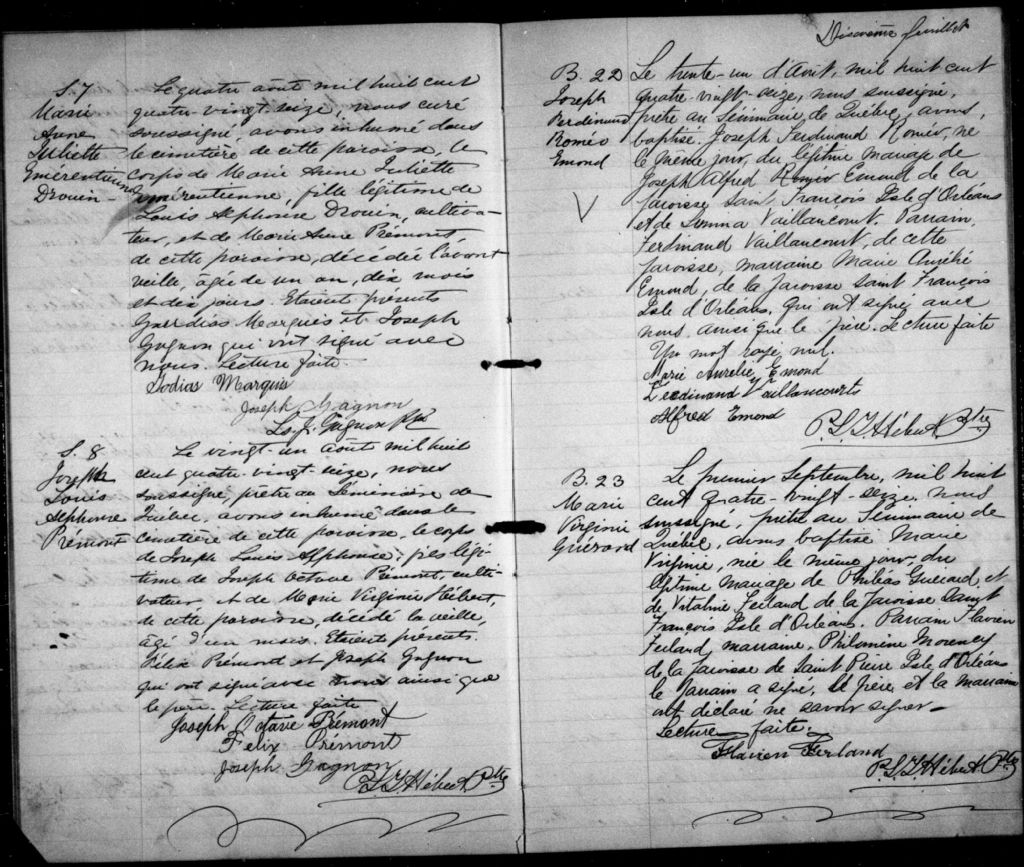 S. 7
Marie
Anne
Juliette
Emérentienne
Drouin
Le quatre août mil huit cent
quatre-vingt-seize, nous curé
soussigné, avons inhumé dans
le cimetière de cette paroisse, le
corps de Marie Anne Juliette
Emérentienne, fille légitime de
Louis Alphonse Drouin, cultiva-
teur, et de Marie Anne Prémont
de cette paroisse, décédée l'avant
veille, âgée de un an, dix mois
et dix jours. Etaient présents
Marquis et Joseph
Gagnon qui ont signé avec
nous. Lecture faite.
Marquis
Joseph Gagnon
Ls. J. Gagnon Ptre
S. 8
Joseph
Louis
Alphonse
Prémont
Le vingt-un août mil huit
cent quatre-vingt-seize, nous
soussigné, prêtre au Séminaire de
Québec, avons inhumé dans le
cimetière de cette paroisse, le corps
de Joseph Louis Alphonse, fils légi-
time de Joseph Octave Prémont, culti-
vateur et de Marie Virginie Hébert,
de cette paroisse, décédé la veille,
âgé d'un mois. Etaient présents
Félix Prémont et Joseph Gagnon
qui ont signé avec nous ainsi que
le père. Lecture faite
Joseph Octave Prémont
Felix Prémont
Joseph Gagnon
P. L. J. Hébert Ptre
feuillet
B. 22
Joseph
Ferdinand
Roméo
Emond
V
Le trente-un d'Août, mil huit cent
quatre-vingt-seize, nous soussigné,
prêtre au Séminaire de Québec, avons,
baptisé Joseph Ferdinand Roméo, né
le même jour, du légitime mariage de
Joseph Alfred Emond de la
paroisse Saint François Isle d'Orléans
et de Vaillancourt. Parrain,
Ferdinand Vaillancourt, de cette
paroisse, marraine Marie Aurélie
Emond, de la paroisse Saint François
Isle d'Orléans. Qui ont signé avec
nous ainsi que le père. Lecture faite
Un mot rayé nul.
Marie Aurelie Emond
Ferdinand Vaillancourt
Alfred Emond
P. L. J. Hébert Ptre
B. 23
Marie
Virginie
Guérard
Le premier Septembre, mil huit
cent quatre-vingt-seize, nous
soussigné, prêtre au Séminaire de
Québec, avons baptisé Marie
Virginie, née le même jour, du
légitime mariage de Philéas Guérard, et
de Vitaline Ferland de la paroisse Saint
François Isle d'Orléans. Parrain Flavien
Ferland, marraine, Philomène Morency
de la paroisse de Saint Pierre Isle d'Orléans
le parrain a signé, le père et la marraine
ont déclaré ne savoir signer—
Lecture faite.
Flavien Ferland
P. L. J. Hébert Ptre